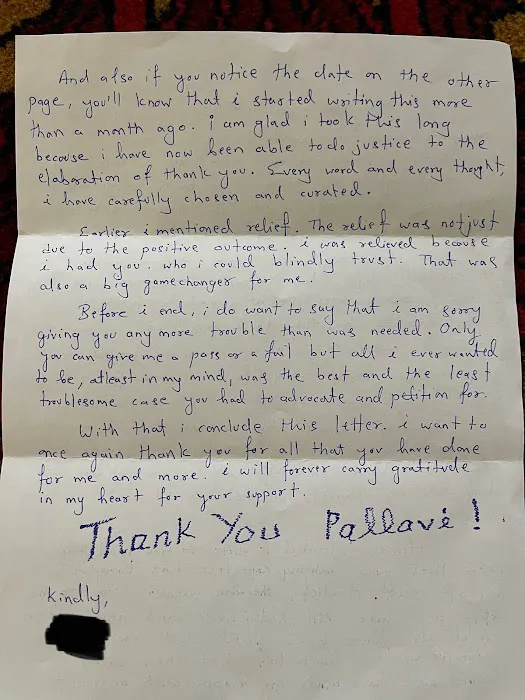 And also if you notice the date on the other
page, you'll know that i started writing this more
than a month ago. i am glad i took this long
because i have now been able to do justice to the
elaboration of thank you. Every word and every thoght,
i have carefully chosen and curated.
Earlier i mentioned relief. The relief was not just
due to the positive outcome. i was relieved because
i had you. who i could blindly trust. That was
also a big gamechanger for me.
Before i end, i do want to say that i am sorry
giving you any more trouble than was needed. Only
you can give me a pass or a fail but all i ever wanted
to be, atleast in my mind, was the best and the least
troublesome case you had to advocate and petition for.
With that i conclude this letter. i want to
once again thank you for all that you have done
for me and more. i will forever carry gratitude
in my heart for your support.
Thank You Pallavi!
Kindly,